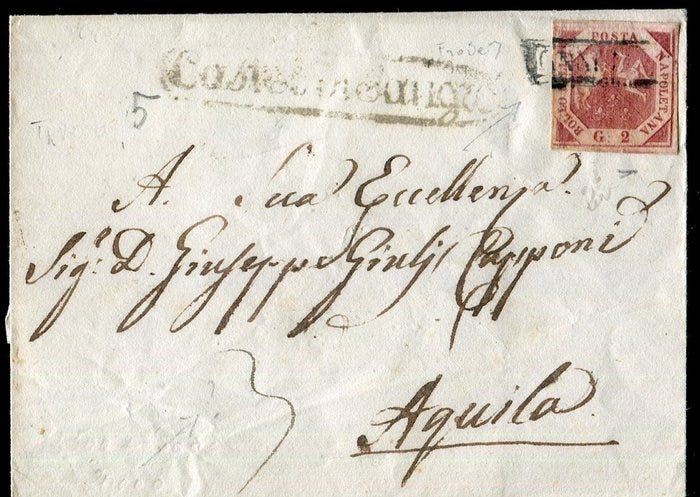 Castel di Sangro
5
ANNULLATO
POSTA
NAPOLETANA
BOLLO
G. 2
A. Sua Eccellenza.
Sig.e D. Giuseppe Giulj Capponi
Aquila